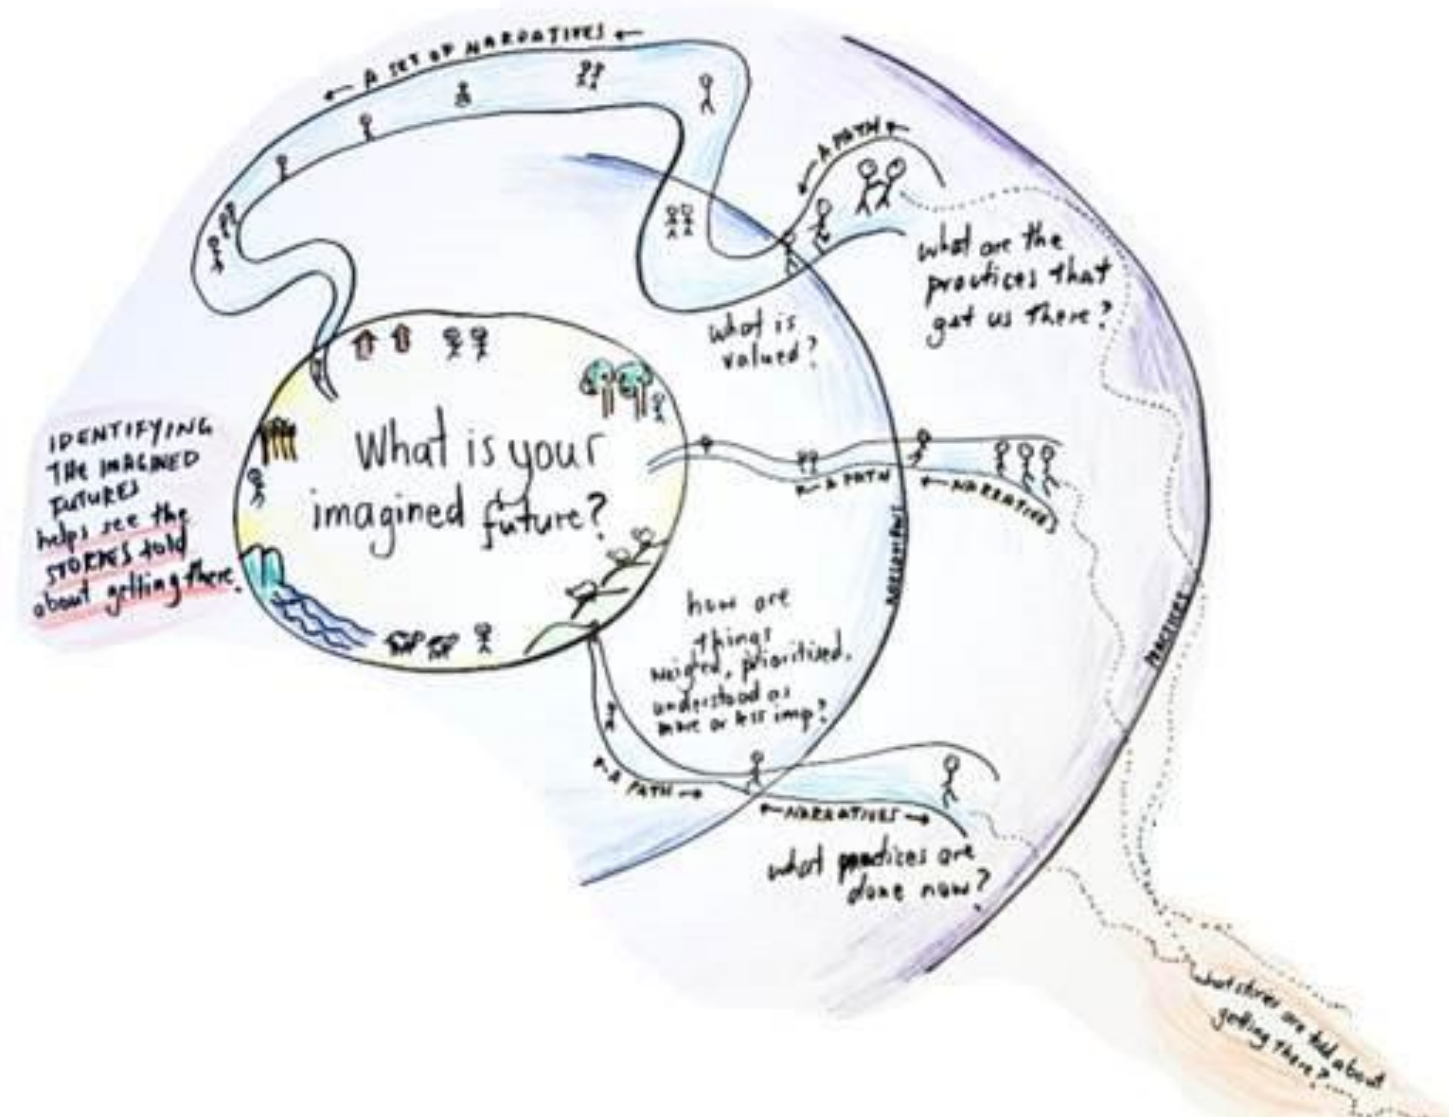 ← A SET OF NARRATIVES ←
← A PATH ←
what are the
practices that
get us there?
what is
valued?
IDENTIFYING
THE IMAGINED
FUTURES
helps see the
STORIES told
about getting there.
What is your
imagined future?
← A PATH
← NARRATIVES
how are
things
weighed, prioritised,
understood as
more or less imp?
PRACTICES
← A PATH →
← NARRATIVES →
what practices are
done now?
what stories are told about
getting there?